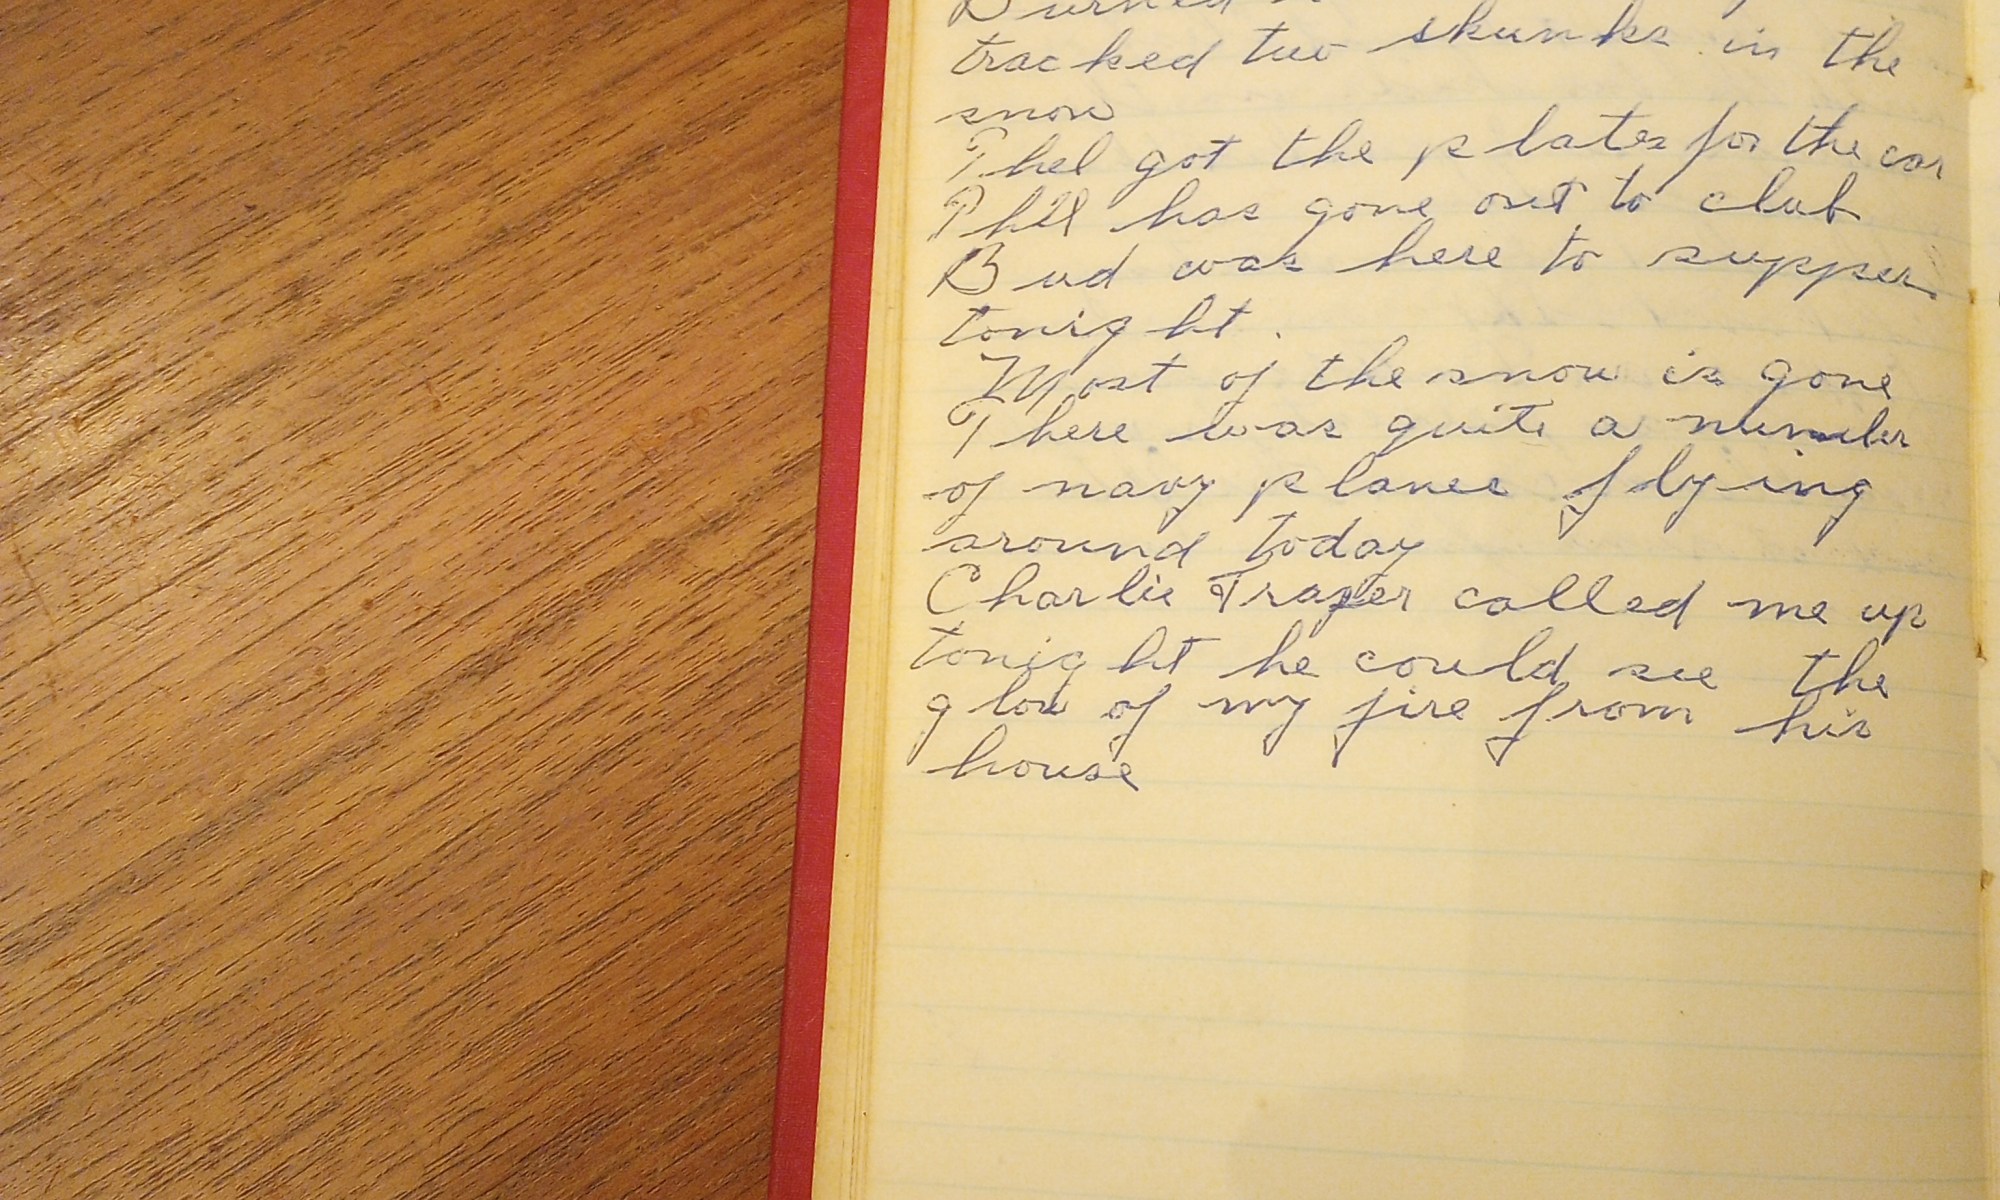 Burned
tracked two skunks in the
snow
Phel got the plates for the car
Phil has gone out to club
Bud was here to supper
tonight.
Most of the snow is gone
There was quite a number
of navy planes flying
around today
Charlie called me up
tonight he could see the
glow of my fire from his
house